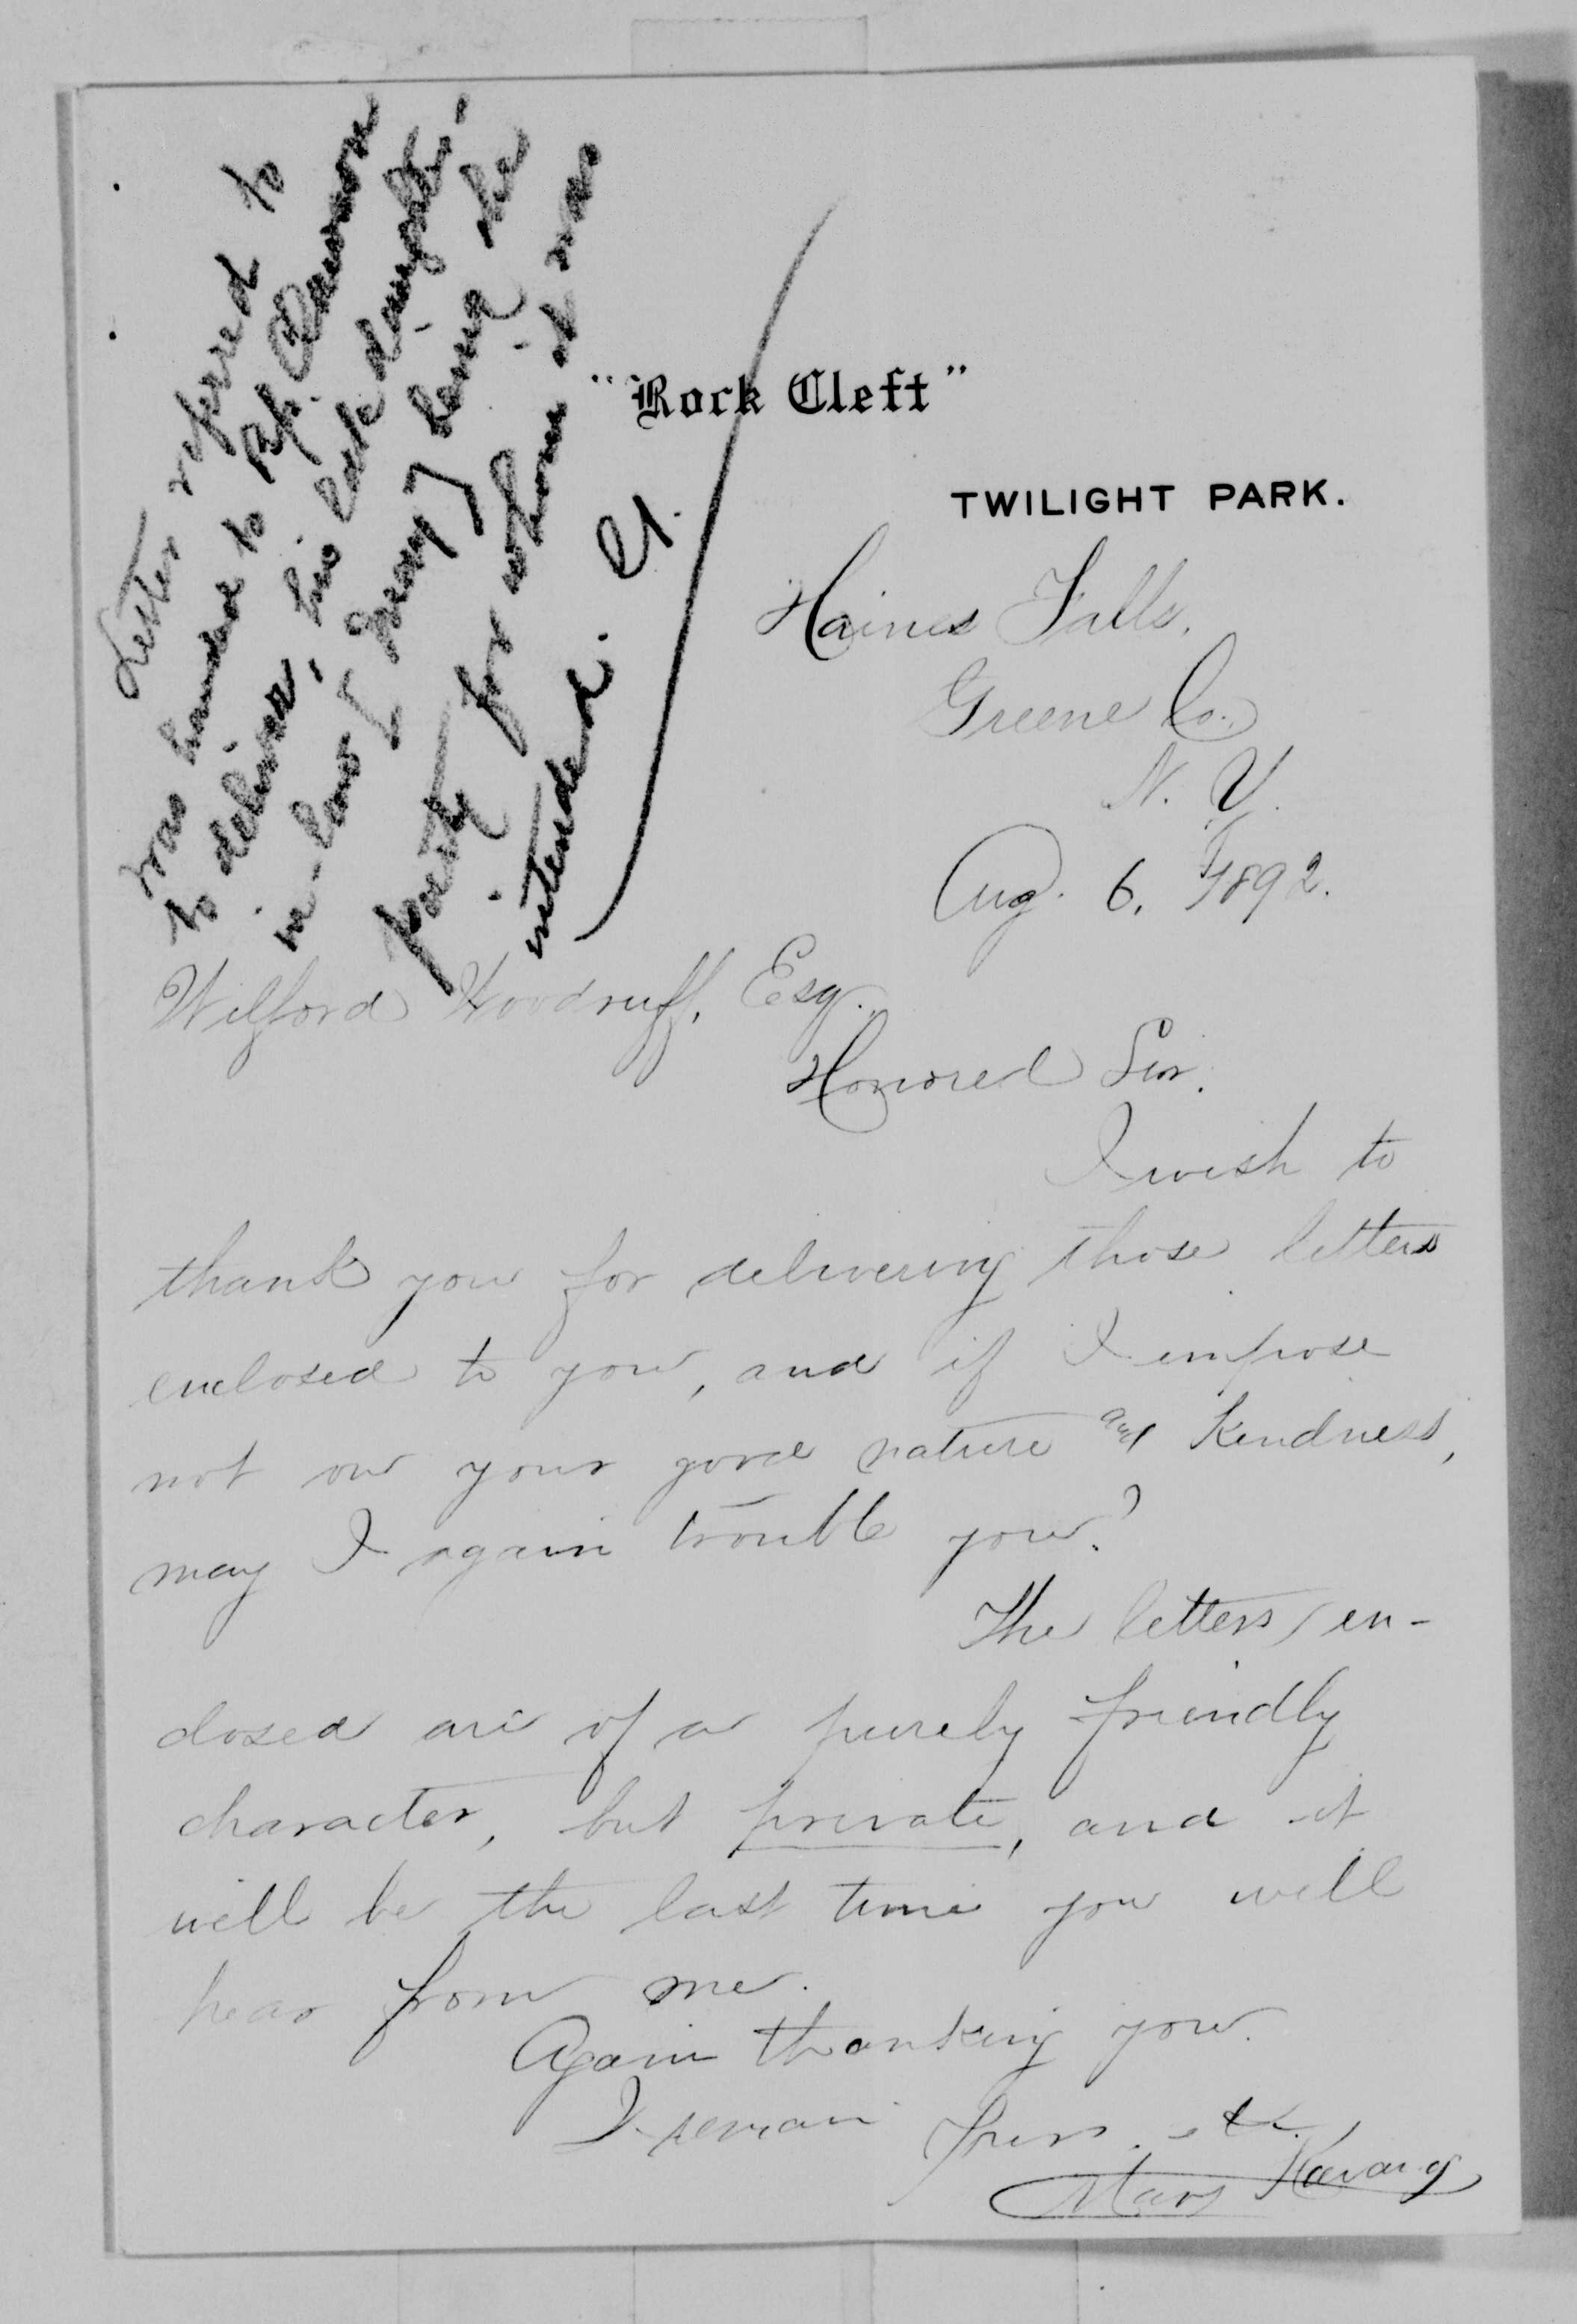 Letter referred to
was handed to Bp. Clawson
to deliver, his late daughter-
in-law [ ] being the
party for whom it was
intended. G.
"Rock Cleft"
TWILIGHT PARK.
Haines Falls,
Greene Co.
N. Y.
Aug. 6, 1892.
Wilford Woodruff, Esq.
Honored Sir,
I wish to
thank you for delivering those letters
enclosed to you, and if I impose
not on your good nature and kindness,
may I again trouble you?
The letters en-
closed are of a purely friendly
character, but private, and it
will be the last time you will
hear from me.
Again thanking you.
I remain
Yours etc.